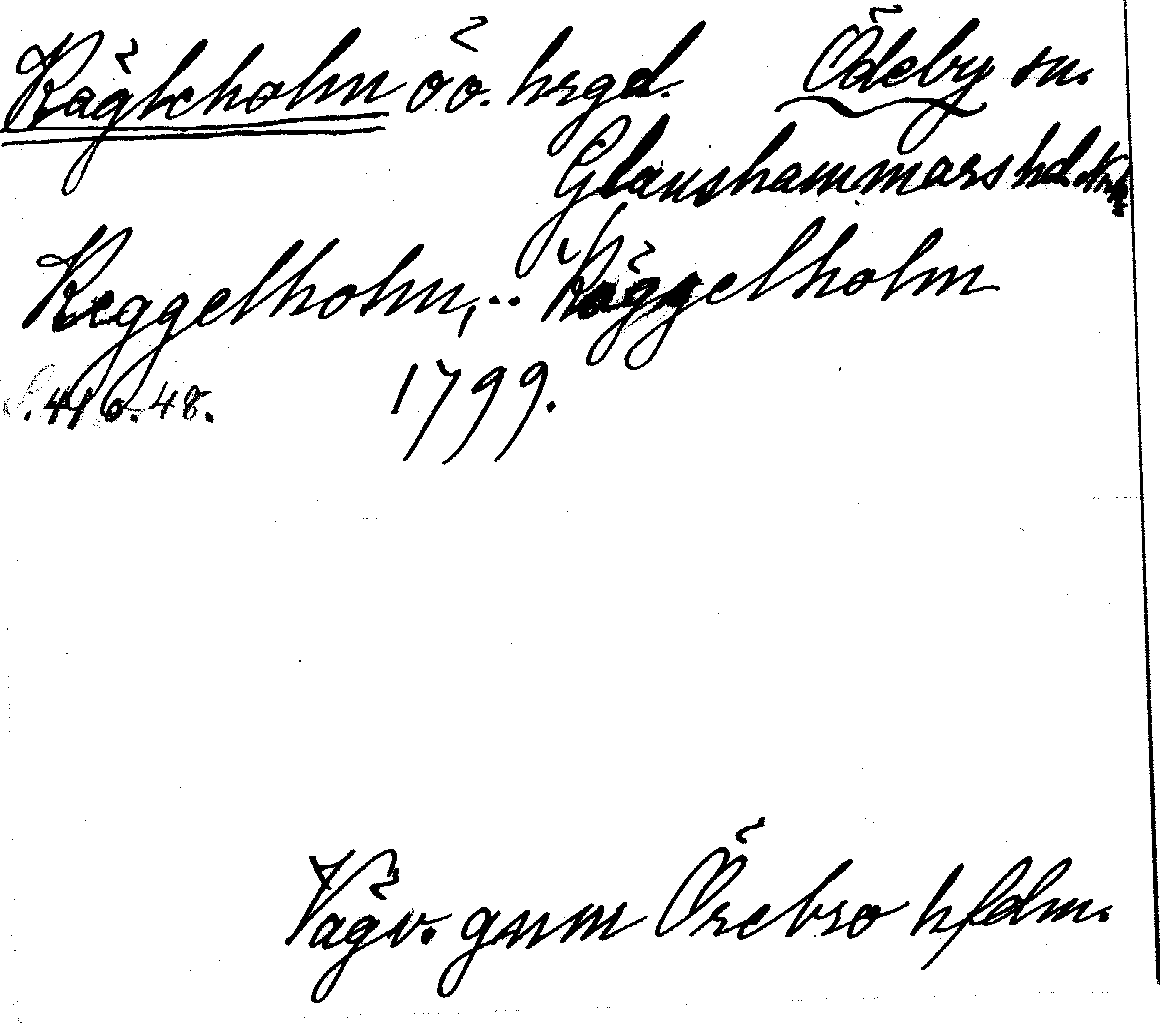 Kägleholm öö. hrgd. Ödeby sn.
Glanshammars hd. Nrk.
Keggelholm, .. Käggelholm
S. 41 o. 48. 1799.
Vägv. gnm Örebro hfdm.